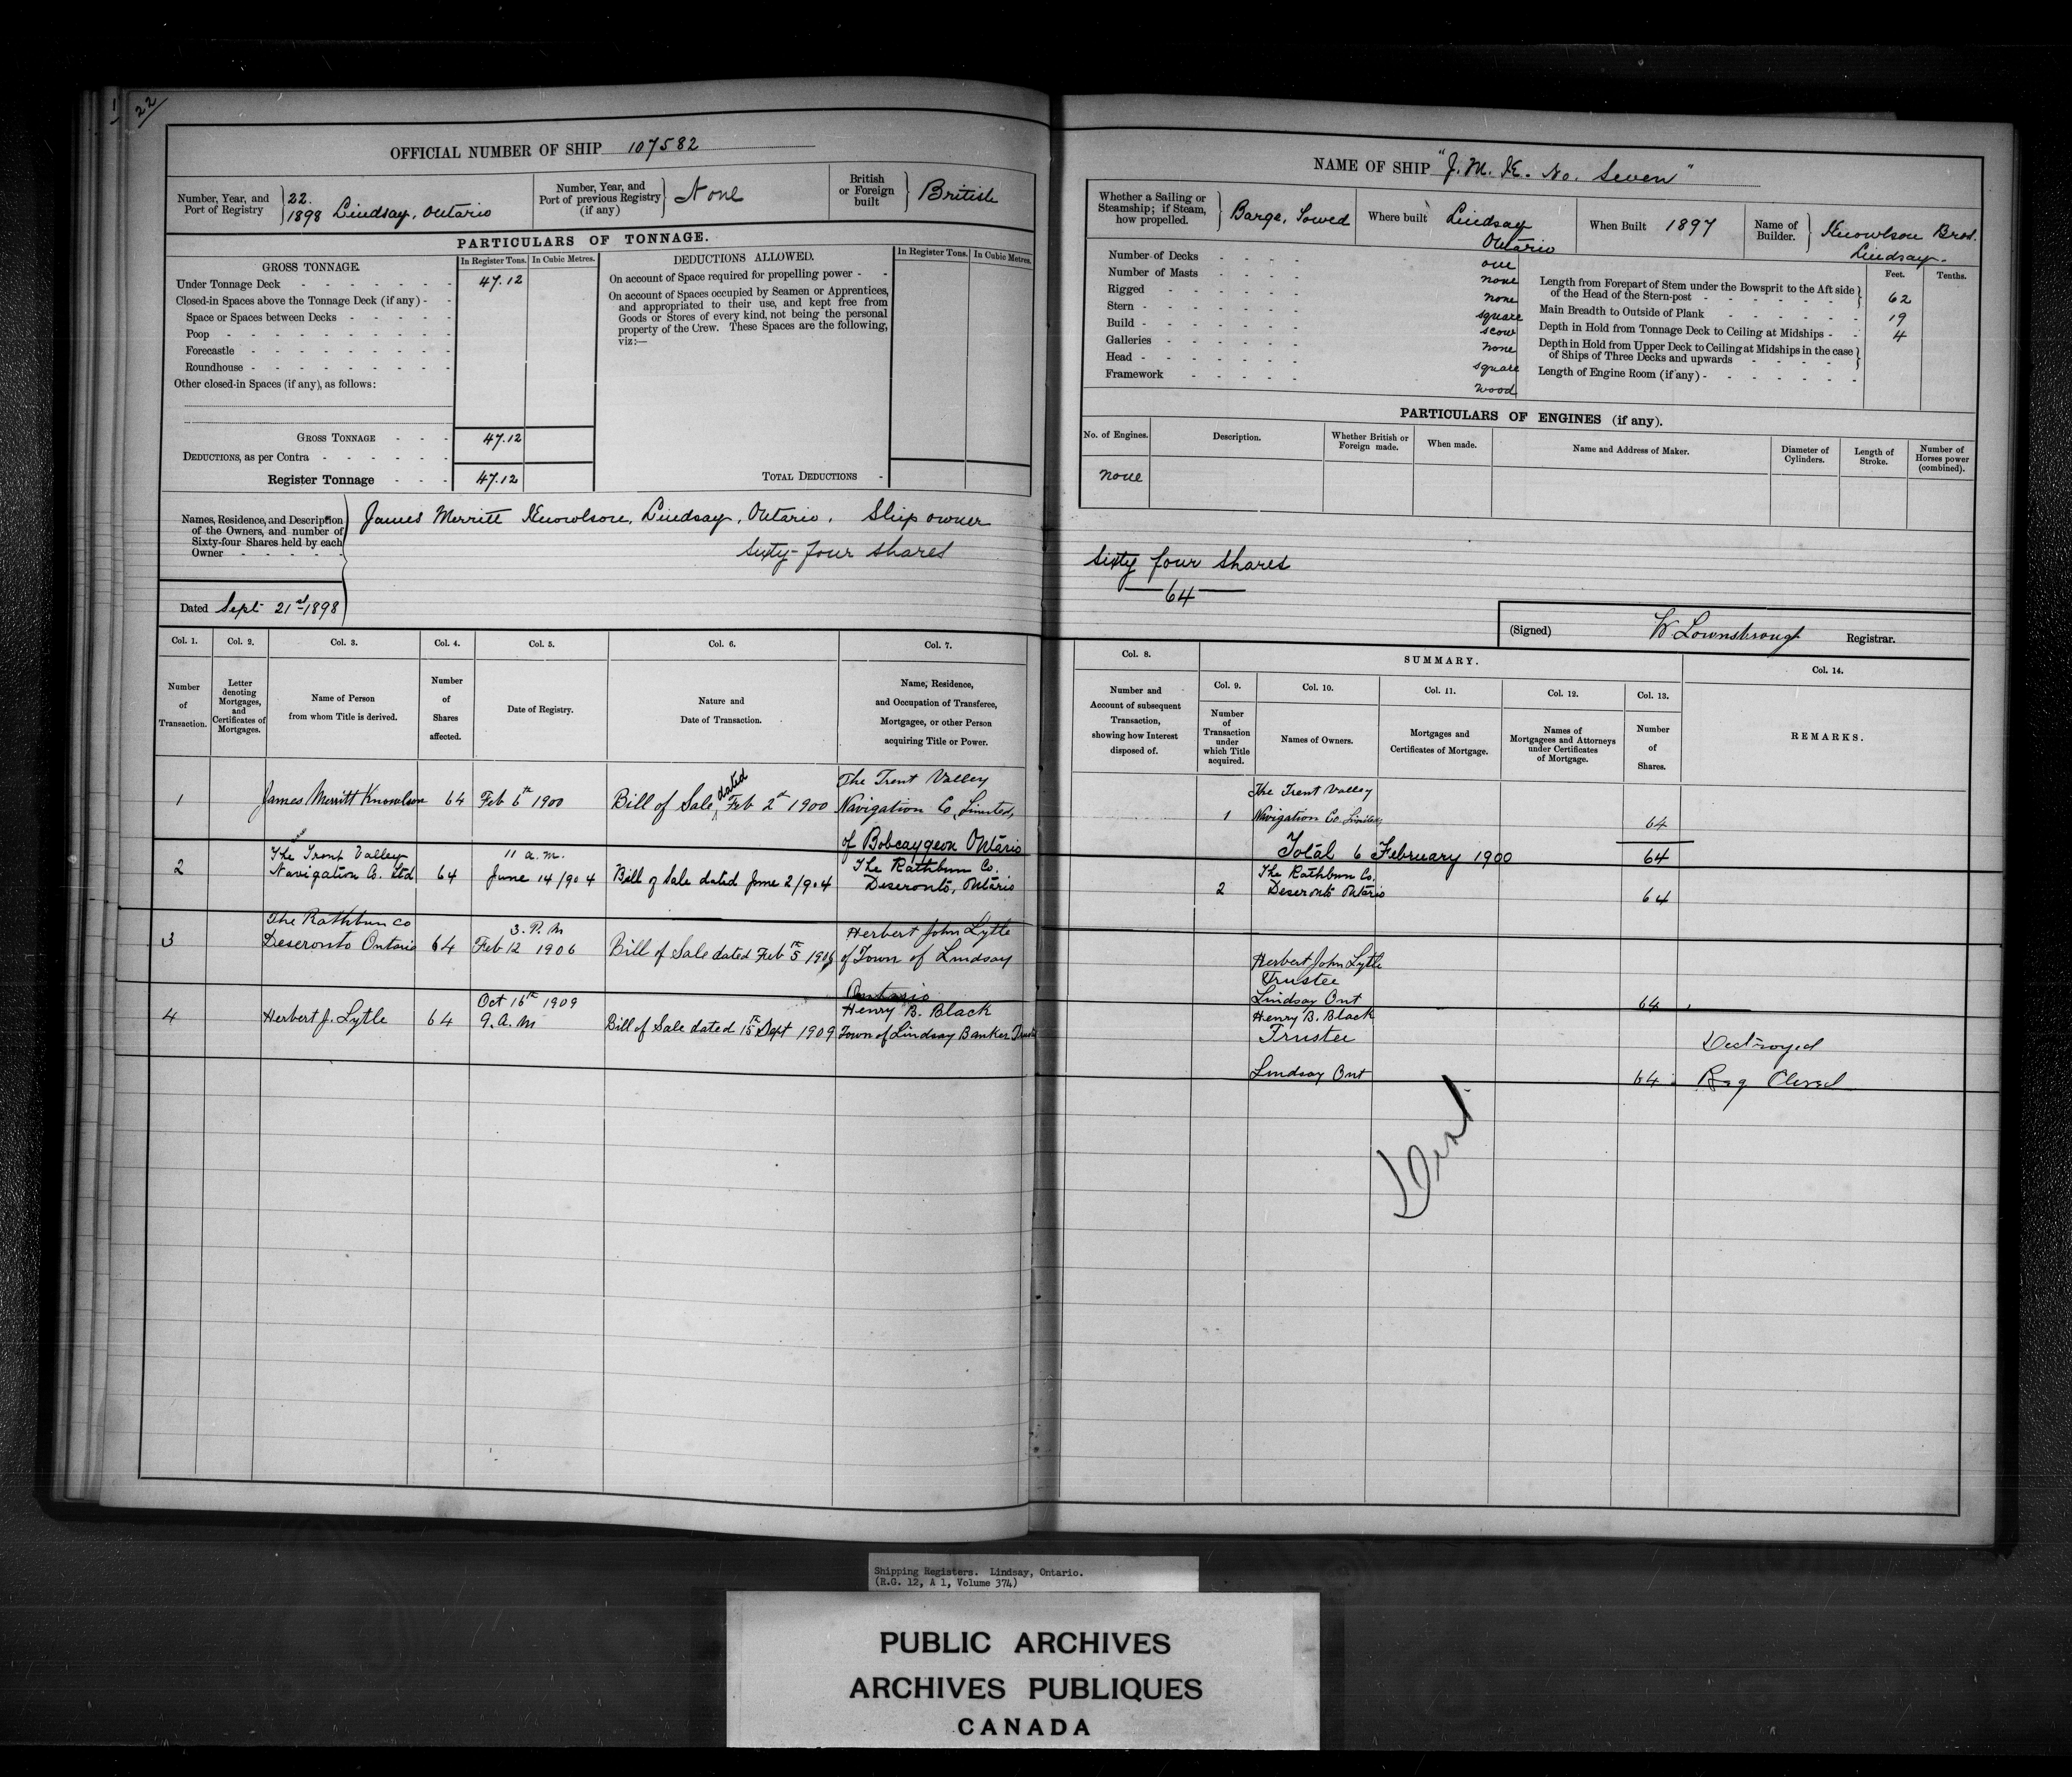 22
OFFICIAL NUMBER OF SHIP 107582
Number, Year, and Port of Registry } 22. 1898 Lindsay, Ontario
Number, Year, and Port of previous Registry (if any) } None
British or Foreign built } British
PARTICULARS OF TONNAGE.
GROSS TONNAGE.
In Register Tons. In Cubic Metres.
DEDUCTIONS ALLOWED.
In Register Tons. In Cubic Metres.
Under Tonnage Deck 47.12
Closed-in Spaces above the Tonnage Deck (if any)
Space or Spaces between Decks
Poop
Forecastle
Roundhouse
Other closed-in Spaces (if any), as follows:
GROSS TONNAGE 47.12
DEDUCTIONS, as per Contra
Register Tonnage 47.12
On account of Space required for propelling power
On account of Spaces occupied by Seamen or Apprentices,
and appropriated to their use, and kept free from
Goods or Stores of every kind, not being the personal
property of the Crew. These Spaces are the following,
viz:—
TOTAL DEDUCTIONS
Names, Residence, and Description
of the Owners, and number of
Sixty-four Shares held by each
Owner
James Merritt Knowlson, Lindsay, Ontario. Ship owner
Sixty-four shares
Dated Sept 21st 1898
Col. 1. Col. 2. Col. 3. Col. 4. Col. 5. Col. 6. Col. 7.
Number of Transaction.
Letter denoting Mortgages, and Certificates of Mortgages.
Name of Person from whom Title is derived.
Number of Shares affected.
Date of Registry.
Nature and Date of Transaction.
Name, Residence, and Occupation of Transferee, Mortgagee, or other Person acquiring Title or Power.
1 James Merritt Knowlson 64 Feb 6th 1900 Bill of Sale, dated Feb 2nd 1900 The Trent Valley
Navigation Co, Limited,
of Bobcaygeon Ontario
2 The Trent Valley Navigation Co. Ltd 64 11 a.m. June 14/904 Bill of Sale dated June 2/904 The Rathbun Co.
Deseronto, Ontario
3 The Rathbun Co Deseronto Ontario 64 3. P. M Feb 12 1906 Bill of Sale dated Feb 5th 1906 Herbert John Lytle
of Town of Lindsay
Ontario
4 Herbert J. Lytle 64 Oct 16th 1909 9. A. M Bill of Sale dated 15th Sept 1909 Henry B. Black
Town of Lindsay Banker
NAME OF SHIP "J. M. K. No. Seven"
Whether a Sailing or Steamship; if Steam, how propelled. } Barge, Towed
Where built Lindsay Ontario
When Built 1897
Name of Builder. } Knowlson Bros. Lindsay.
Number of Decks one
Number of Masts none
Rigged none
Stern square
Build scow
Galleries none
Head square
Framework wood
Feet. Tenths.
Length from Forepart of Stem under the Bowsprit to the Aft side
of the Head of the Stern-post 62
Main Breadth to Outside of Plank 19
Depth in Hold from Tonnage Deck to Ceiling at Midships 4
Depth in Hold from Upper Deck to Ceiling at Midships in the case
of Ships of Three Decks and upwards
Length of Engine Room (if any)
PARTICULARS OF ENGINES (if any).
No. of Engines. Description. Whether British or Foreign made. When made. Name and Address of Maker. Diameter of Cylinders. Length of Stroke. Number of Horses power (combined).
none
Sixty four shares
64
(Signed) W Lownsbrough Registrar.
Col. 8. SUMMARY. Col. 14.
Col. 9. Col. 10. Col. 11. Col. 12. Col. 13.
Number and Account of subsequent Transaction, showing how Interest disposed of.
Number of Transaction under which Title acquired.
Names of Owners.
Mortgages and Certificates of Mortgage.
Names of Mortgagees and Attorneys under Certificates of Mortgage.
Number of Shares.
REMARKS.
1 The Trent Valley
Navigation Co. Limited, 64
Total 6 February 1900 64
2 The Rathbun Co.
Deseronto Ontario 64
Herbert John Lytle
Trustee
Lindsay Ont 64
Henry B. Black
Trustee
Lindsay Ont 64
Destroyed
Reg Closed
Shipping Registers. Lindsay, Ontario.
(R.G. 12, A 1, Volume 374)
PUBLIC ARCHIVES
ARCHIVES PUBLIQUES
CANADA